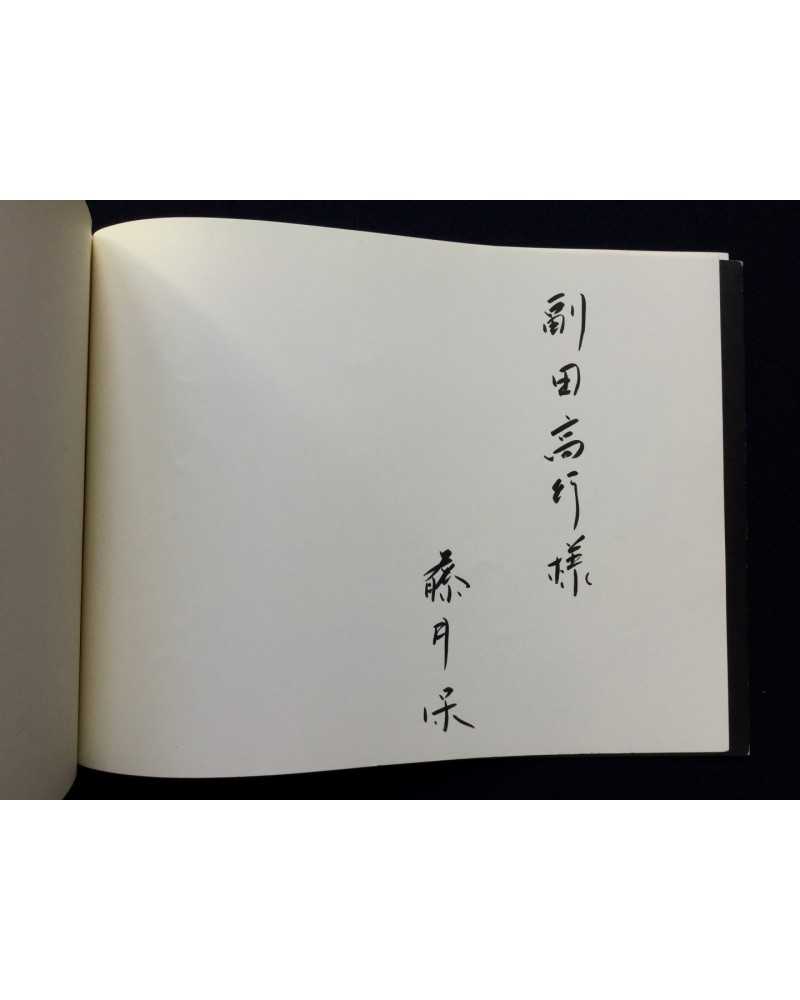 副田高行様
藤井保